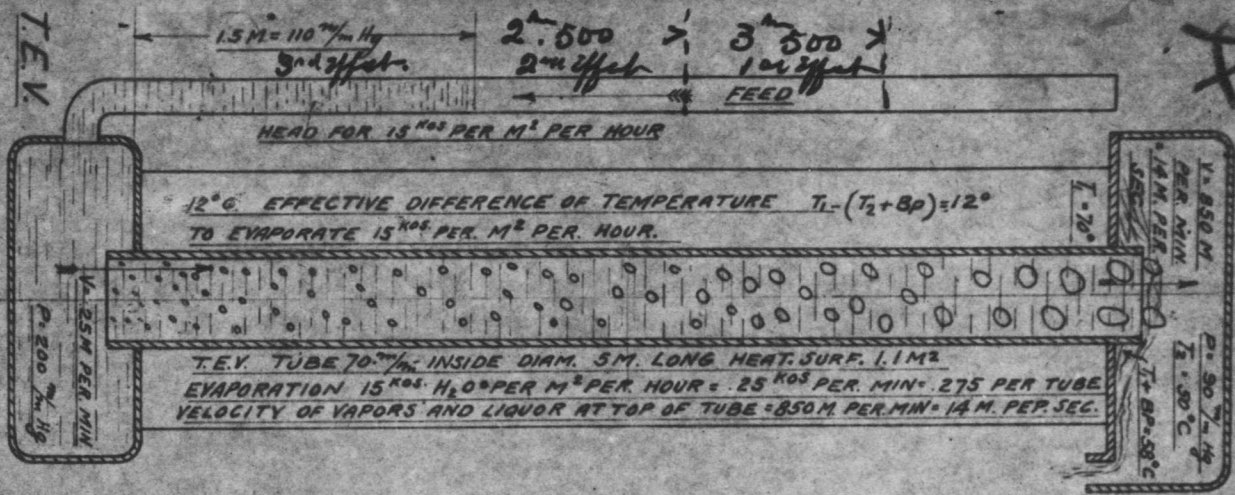 T.E.V.
1.5 M = 110 m/m Hg
3rd effect
2m.500
2nd effect
3m 500
1st effect
FEED
HEAD FOR 15 KOS PER M² PER HOUR
12° C. EFFECTIVE DIFFERENCE OF TEMPERATURE T1-(T2+BP)=12°
TO EVAPORATE 15 KOS. PER M² PER. HOUR.
V=.25M PER. MIN
P=200 m/m Hg
T.E.V. TUBE 70 m/m INSIDE DIAM. 5M. LONG HEAT. SURF. 1.1 M²
EVAPORATION 15 KOS. H2O PER M² PER HOUR = .25 KOS PER. MIN = .275 PER TUBE
VELOCITY OF VAPORS AND LIQUOR AT TOP OF TUBE = 850 M. PER. MIN = 14 M. PEP. SEC.
T1=70°
V=850 M
PER. MIN
=14 M. PER
SEC
P=90 m/m Hg
T2=50°C
T+BP=58°C